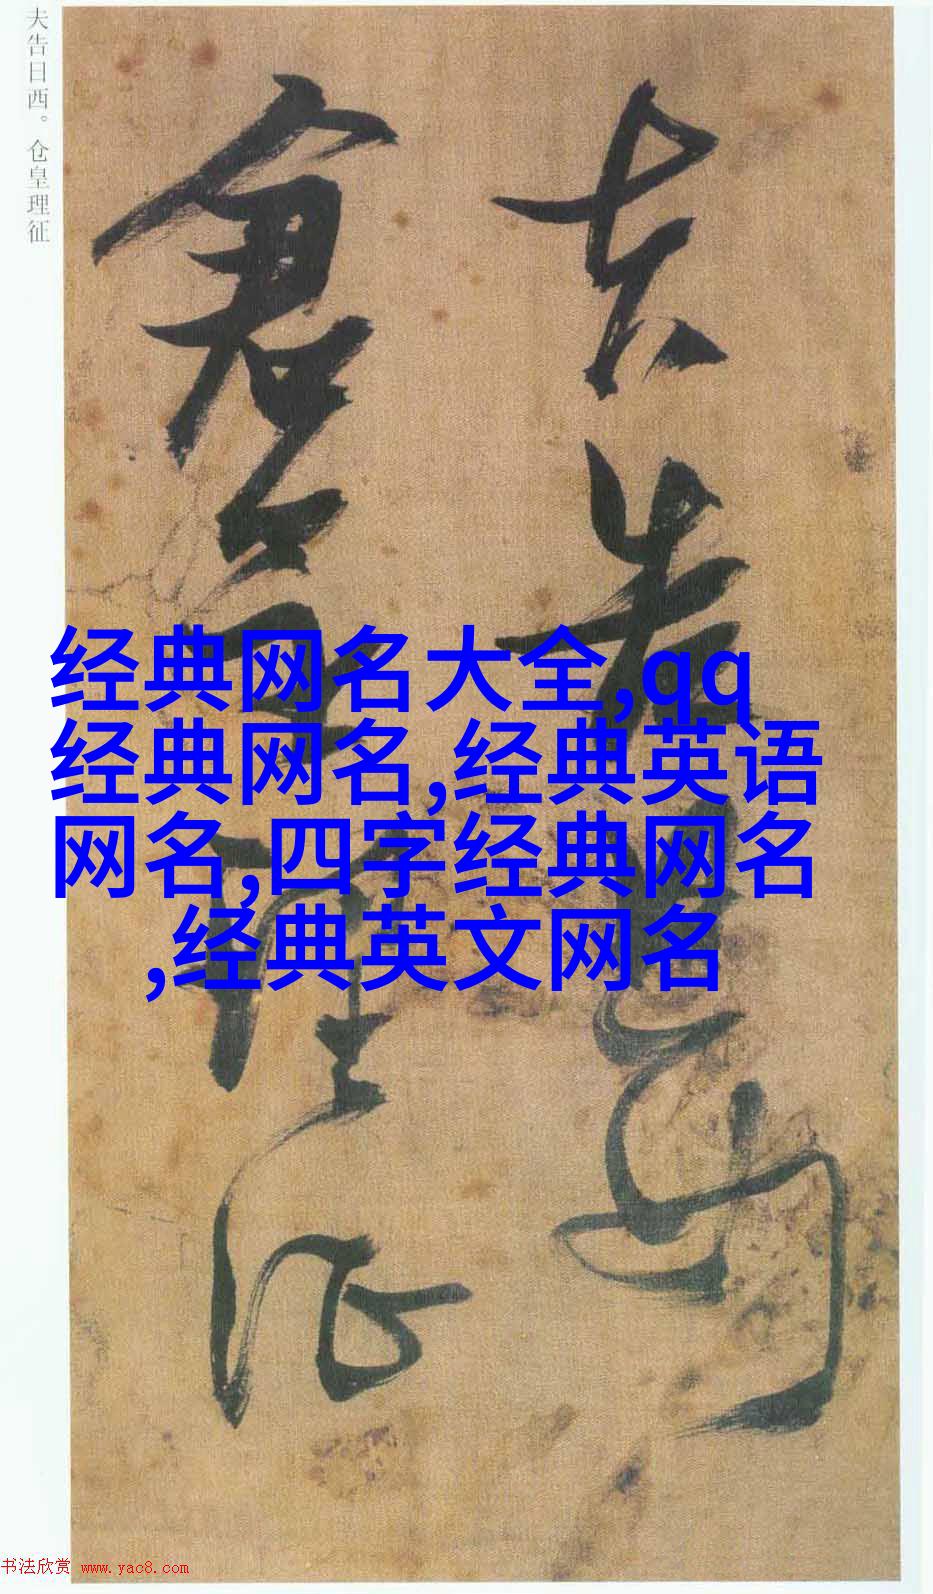 夫告日西。仓皇理征
夫告日西
仓皇理征
经典网名大全,qq
经典网名,经典英语
网名,四字经典网名
,经典英文网名
书法欣赏 www.yac8.com